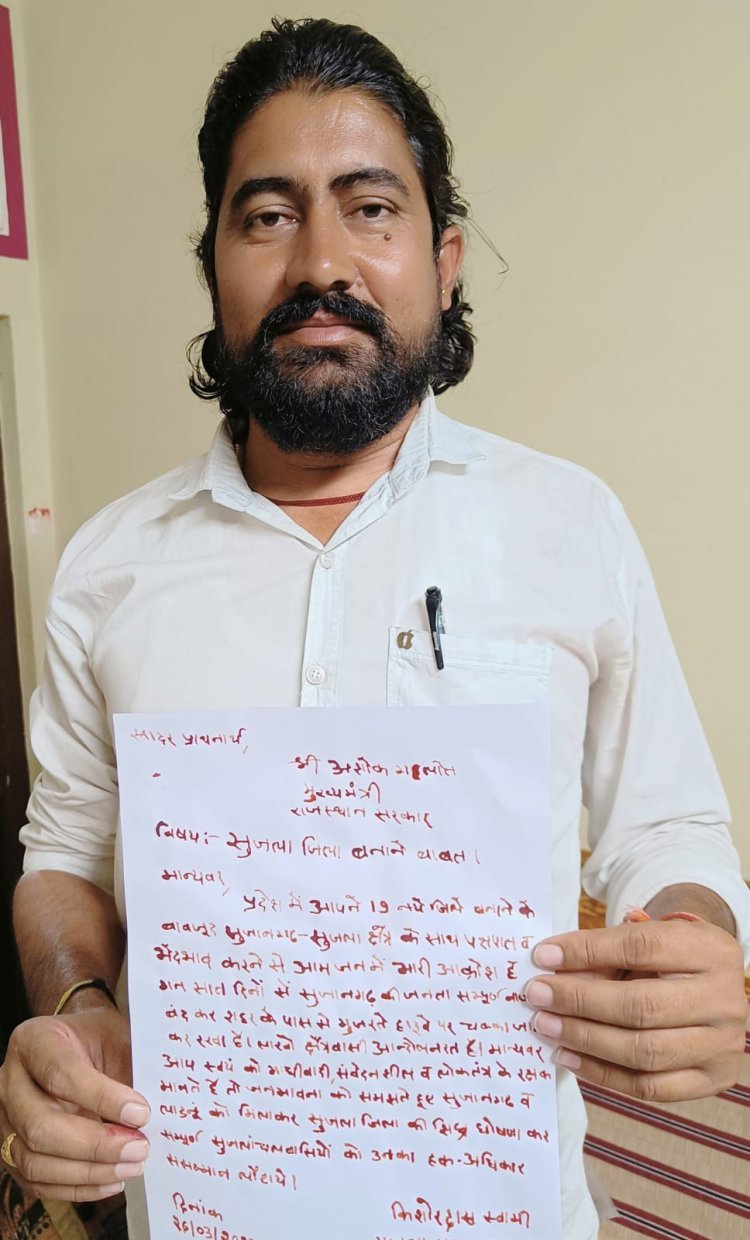 सादर प्राथनार्थ,
श्री अशोक गहलोत
मुख्यमंत्री
राजस्थान सरकार
विषय:- सुजला जिला बनाने बाबत।
मान्यवर,
प्रदेश में आपने 19 नये जिले बनाने के
बावजूद सुजानगढ-सुजला क्षैत्र के साथ पक्षपात व
भेदभाव करने से आम जन में भारी आक्रोश है
गत सात दिनों से सुजानगढ की जनता सम्पूर्ण
बंद कर शहर के पास से गुजरते हाइवे पर चक्का जा
कर रखा है। लाखों क्षैत्रवासी आन्दोलनरत है। मान्यवर
आप स्वयं को गांधीवादी, संवेदनशील व लोकतंत्र के रक्षक
मानते है तो जनभावना को समझते हुए सुजानगढ व
लाडनू को मिलाकर सुजला जिला की घोषणा कर
सम्पूर्ण सुजलांचलवासियों को उनका हक-अधिकार
ससम्मान लौटाये।
दिनांक
किशोरदास स्वामी
26/03/20